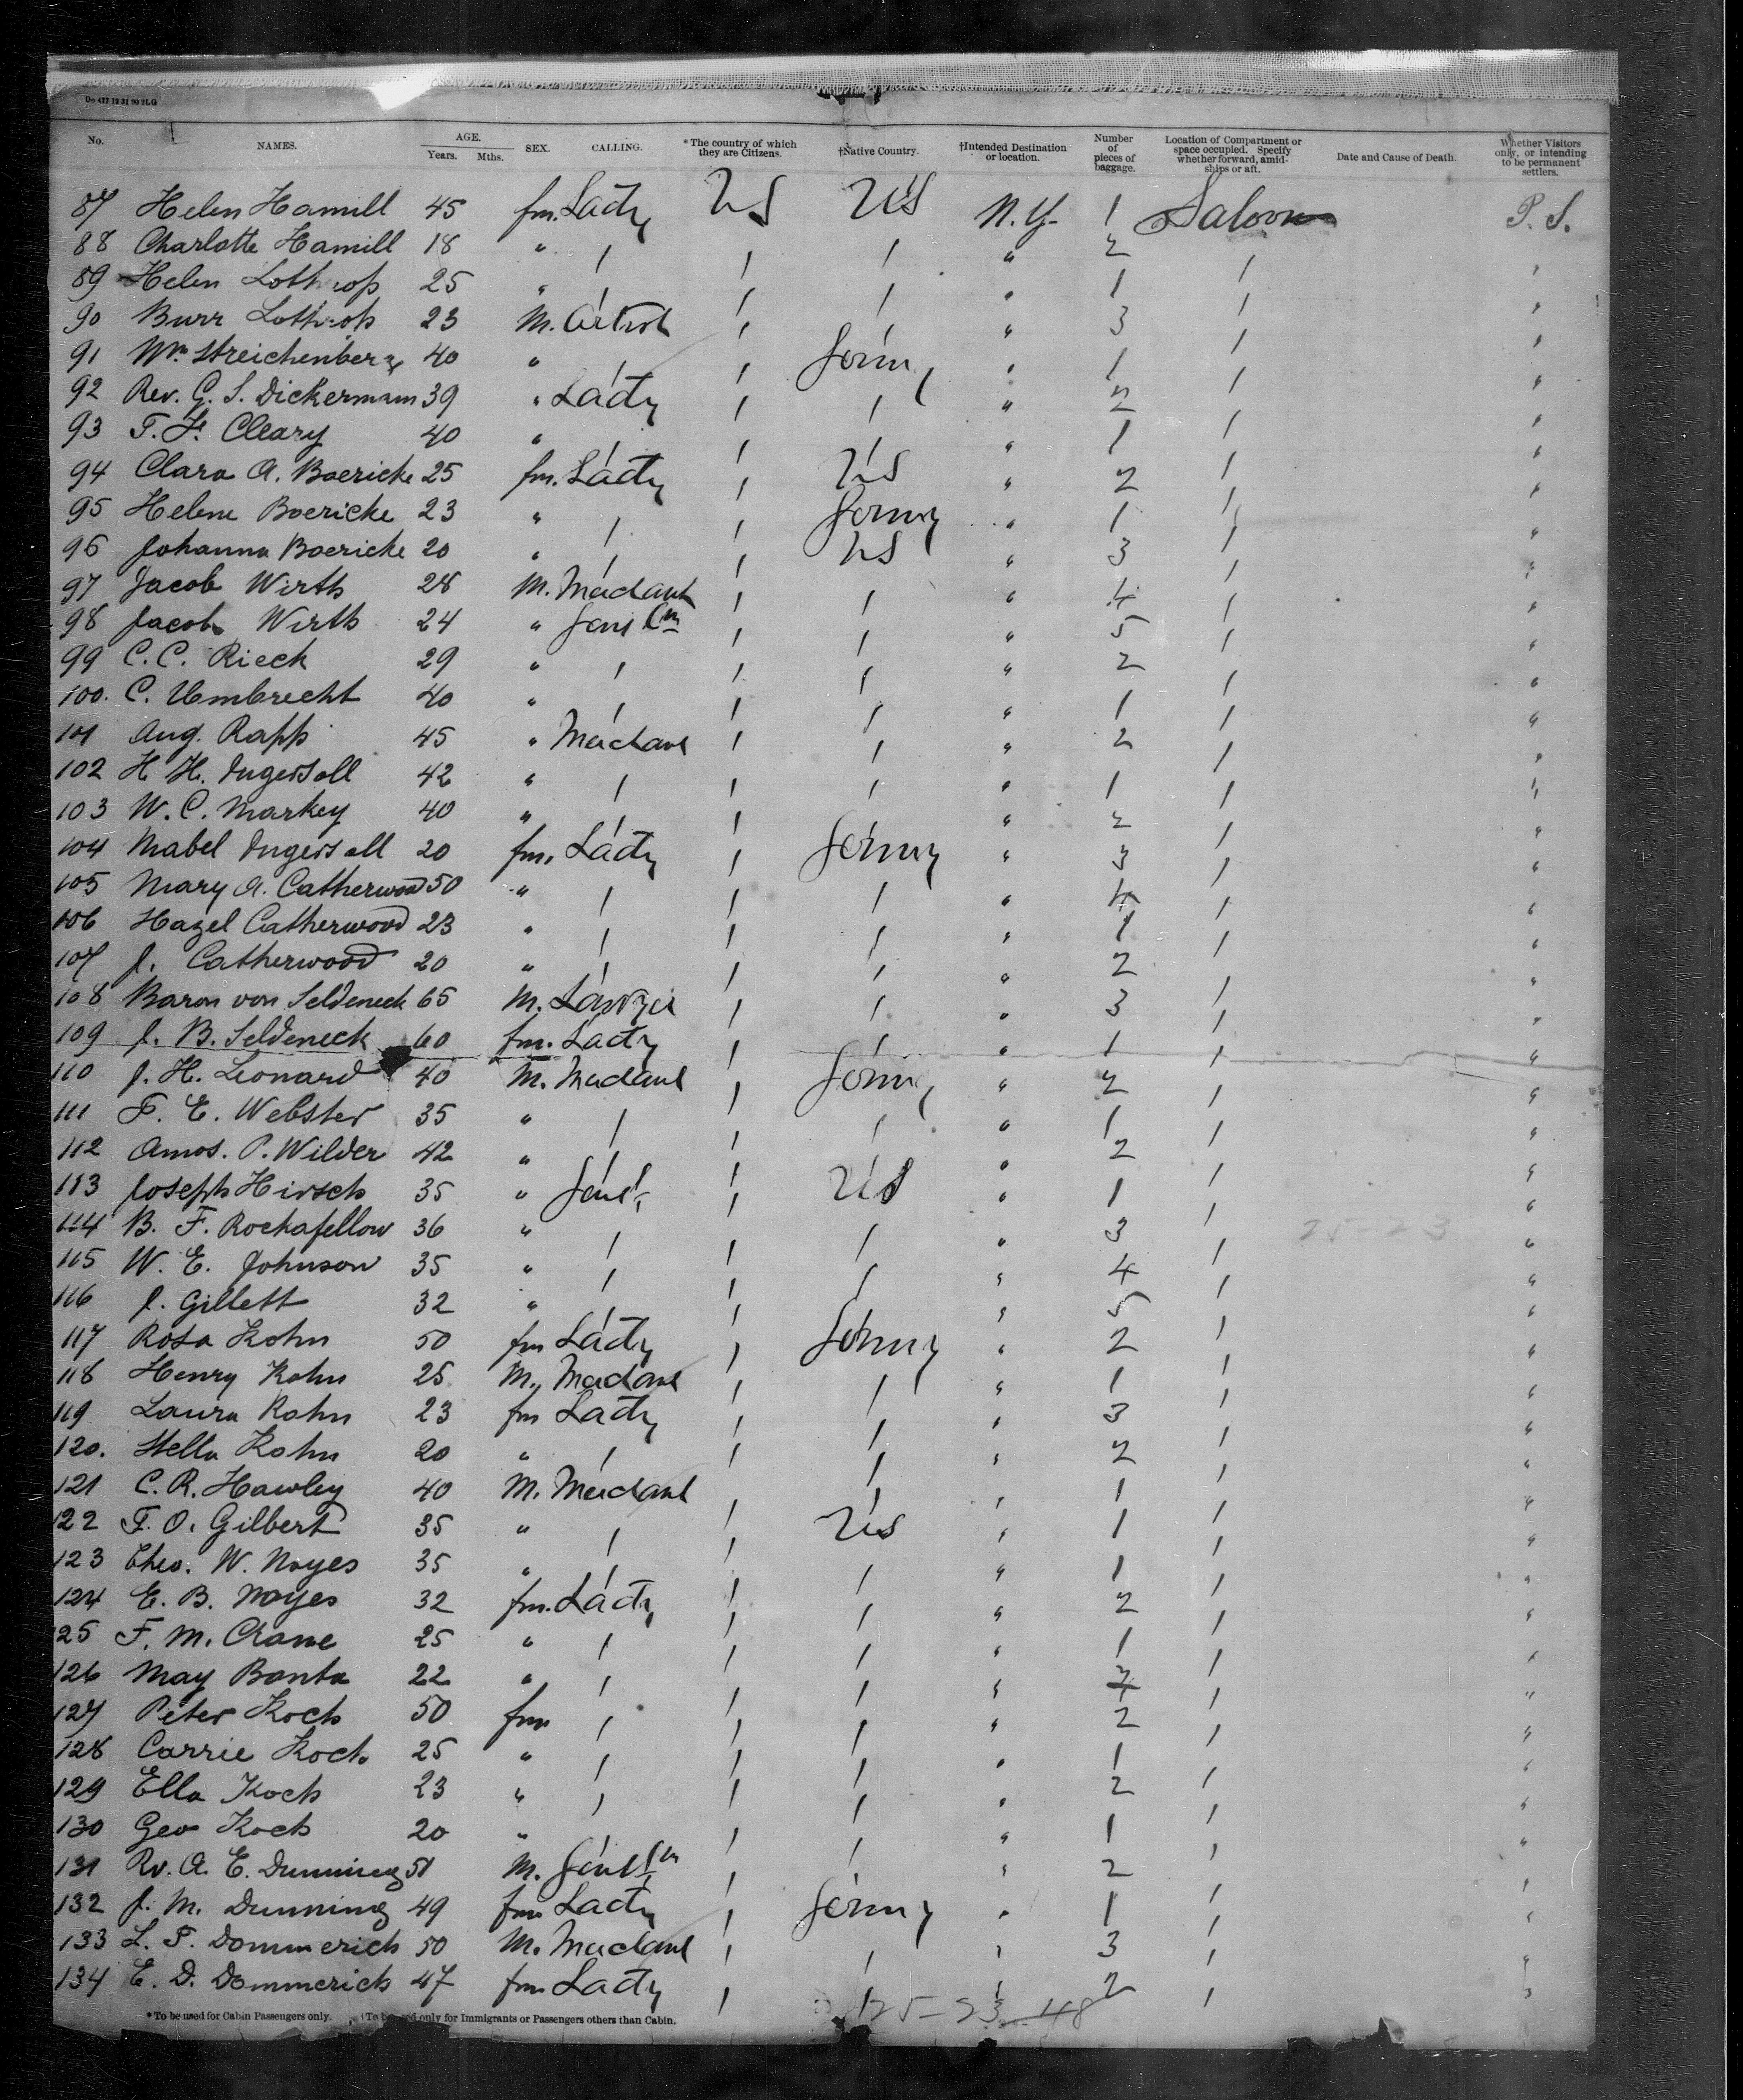 Do 477 12 31 90 2LG
No. NAMES. AGE. Years. Mths. SEX. CALLING. *The country of which they are Citizens. †Native Country. †Intended Destination or location. Number of pieces of baggage. Location of Compartment or space occupied. Specify whether forward, amidships or aft. Date and Cause of Death. Whether Visitors only, or intending to be permanent settlers.
87 Helen Hamill 45 fm. Lady US US N.Y. 1 Saloon P.S.
88 Charlotte Hamill 18 " / / / " 2
89 Helen Lothrop 25 " / / / " 1 / "
90 Burr Lothrop 23 M. Artist / / " 3 / "
91 Wm Streichenberg 40 " / / Germy " 1 / "
92 Rev. G. S. Dickermann 39 " Lady / / " 2 / "
93 T. F. Cleary 40 " / / " 1 / "
94 Clara A. Boericke 25 fm. Lady / US " 2 / "
95 Helene Boericke 23 " / / Germy " 1 / "
96 Johanna Boericke 20 " / / US " 3 / "
97 Jacob Wirth 28 M. Merchant / / " 4 / "
98 Jacob Wirth 24 " Gentlm / / " 5 / "
99 C. C. Rieck 29 " / / / " 2 / "
100. C. Umbrecht 40 " / / / " 1 / "
101 Aug. Rapp 45 " Merchant / / " 2 / "
102 H. H. Ingersoll 42 " / / / " 1 / "
103 W. C. Markey 40 " / / " 2 / "
104 Mabel Ingersoll 20 fm. Lady / Germy " 3 / "
105 Mary A. Catherwood 50 " / / / " 4 / "
106 Hazel Catherwood 23 " / / / " 1 / "
107 J. Catherwood 20 " / / / " 2 / "
108 Baron von Seldeneck 65 M. Lawyer / / " 3 / "
109 J. B. Seldeneck 60 fm. Lady / / " 1 / "
110 J. H. Leonard 40 M. Merchant / Germy " 2 / "
111 F. E. Webster 35 " / / / " 1 / "
112 Amos. P. Wilder 42 " / / " 2 / "
113 Joseph Hirsch 35 " Gent. / US " 1 / "
114 B. F. Rockafellow 36 " / / / " 3 / 25-23 "
115 W. E. Johnson 35 " / / / " 4 / "
116 J. Gillett 32 " / / " 5 / "
117 Rosa Kohn 50 fm Lady / Germy " 2 / "
118 Henry Kohn 25 M. Merchant / / " 1 / "
119 Laura Kohn 23 fm Lady / / " 3 / "
120. Stella Kohn 20 " / / / " 2 / "
121 C. R. Hawley 40 M. Merchant / / " 1 / "
122 F. O. Gilbert 35 " / / US " 1 / "
123 Theo. W. Noyes 35 " / / / " 1 / "
124 E. B. Noyes 32 fm. Lady / / " 2 / "
125 F. M. Crane 25 " / / / " 1 / "
126 May Banta 22 " / / / " / "
127 Peter Koch 50 fm / / / " 2 / "
128 Carrie Koch 25 " / / / " 1 "
129 Ella Koch 23 " / / / " 2 / "
130 Geo Koch 20 " / / " 1 / "
131 Rv. A. E. Dunning 51 M. Gentlm / / " 2 /
132 J. M. Dunning 49 fm Lady / Germy " 1 / "
133 L. F. Dommerich 50 M. Merchant / / " 3 / "
134 E. D. Dommerich 47 fm Lady / / " 2 / "
*To be used for Cabin Passengers only. †To be used only for Immigrants or Passengers others than Cabin.
125-23-48